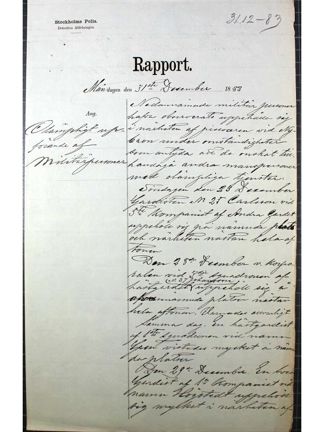 Stockholms Polis.
Detectiva Afdelningen.
31.12-83
Rapport.
Måndagen den 31sta December 1883
Ang.
Olämpligt upp-
förande af
Militärpersoner
Nedannämnde militär personer
hafva observerats uppehålla sig
i närheten af pissoaren vid
bron under omständigheter
som antyda att de önskat till-
handagå andra manspersoner
med olämpliga tjenster
Söndagen den 23 December
Gardisten No 25 Carlsson vid
5te Kompaniet af Andra Gardet
uppehöll sig på nämnde plats
och närheten nästan hela af-
tonen
Den 25te December v. Korpo-
ralen vid squadronen af
hästgardet uppehöll sig å
ofvannämnde platser nästan
hela aftonen.
Samma dag. En hästgardist
af 1sta squadronen vid namn
vistades mycket å nämn-
de platser
Den 29de December En Svea
Gardist af 1sta Kompaniet vid
namn uppehöll
sig mycket i närheten af